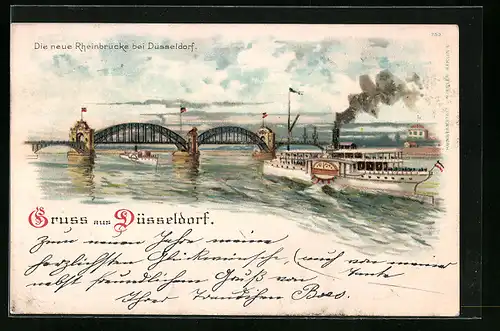 Die neue Rheinbrücke bei Düsseldorf.
Gruss aus Düsseldorf.
Zum neuen Jahre meine
herzlichsten Glückwünsche, (auch von meiner Tante
nebst freundlichem Gruß von
Ihrer